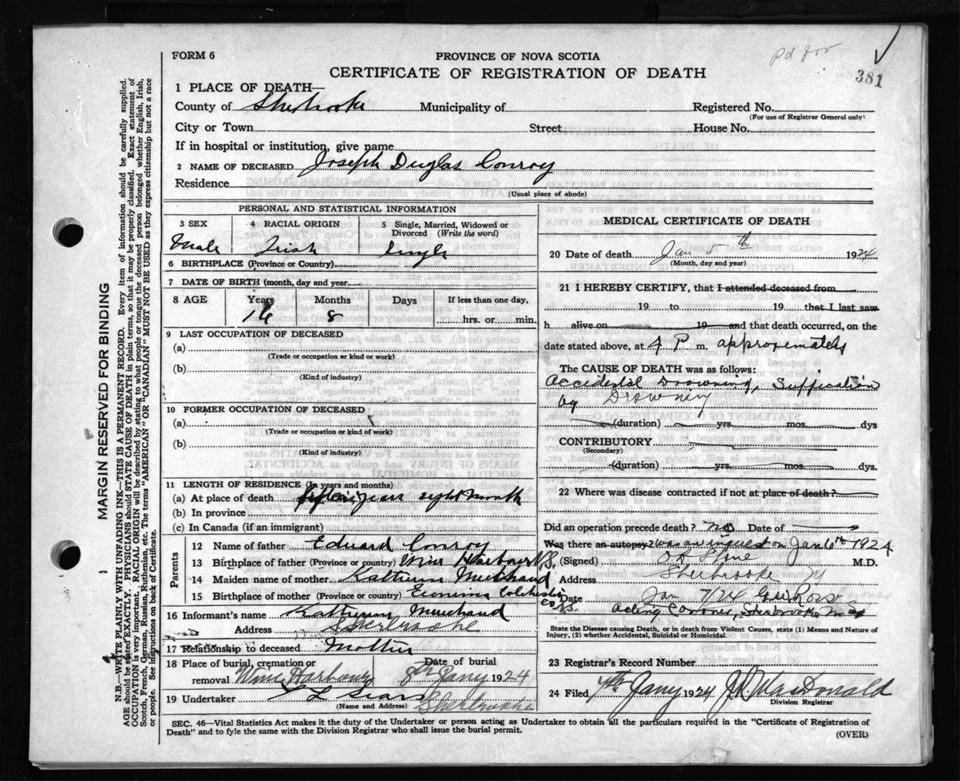 pd for
381
FORM 6
PROVINCE OF NOVA SCOTIA
CERTIFICATE OF REGISTRATION OF DEATH
1 PLACE OF DEATH—
County of Sherbrooke Municipality of Registered No.
(For use of Registrar General only)
City or Town Street House No.
If in hospital or institution, give name
2 NAME OF DECEASED Joseph Duglas Conroy
Residence
(Usual place of abode)
PERSONAL AND STATISTICAL INFORMATION
3 SEX 4 RACIAL ORIGIN 5 Single, Married, Widowed or Divorced (Write the word)
Male Irish single
6 BIRTHPLACE (Province or Country)
7 DATE OF BIRTH (month, day and year)
8 AGE Years Months Days If less than one day,
16 8 hrs. or min.
9 LAST OCCUPATION OF DECEASED
(a)
(Trade or occupation or kind or work)
(b)
(Kind of industry)
10 FORMER OCCUPATION OF DECEASED
(a)
(Trade or occupation or kind of work)
(b)
(Kind of industry)
11 LENGTH OF RESIDENCE (in years and months)
(a) At place of death years eight month
(b) In province
(c) In Canada (if an immigrant)
Parents
12 Name of father Eduard Conroy
13 Birthplace of father (Province or Country) Wine Harbour N.S.
14 Maiden name of mother Katherine
15 Birthplace of mother (Province or Country) Colchester
Co N.S.
16 Informant's name Katherine
Address Sherbrooke
17 Relationship to deceased Mother
18 Place of burial, cremation or removal Wine Harbour Date of burial Jany 1924
19 Undertaker L Sears
(Name and Address) Sherbrooke
MEDICAL CERTIFICATE OF DEATH
20 Date of death Jan 5th 1924
(Month, day and year)
21 I HEREBY CERTIFY, that I attended deceased from
19 to 19 that I last saw
h alive on 19 and that death occurred, on the
date stated above, at 4 P m. approximately
The CAUSE OF DEATH was as follows:
Accidental Drowning, Suffication
by Drowning
(duration) yrs. mos. dys
CONTRIBUTORY
(Secondary)
(duration) yrs. mos. dys.
22 Where was disease contracted if not at place of death?
Did an operation precede death? no Date of
Was there an autopsy? was an inquest on Jan 6th 1924
(Signed) M.D.
Address Sherbrooke
Date Jan 7/24 G.W. Ross
acting Coroner, Sherbrooke N.S.
State the Disease causing Death, or in death from Violent Causes, state (1) Means and Nature of
Injury, (2) whether Accidental, Suicidal or Homicidal.
23 Registrar's Record Number
24 Filed 7th Jany 1924 MacDonald
Division Registrar
SEC. 46—Vital Statistics Act makes it the duty of the Undertaker or person acting as Undertaker to obtain all the particulars required in the "Certificate of Registration of
Death" and to fyle the same with the Division Registrar who shall issue the burial permit.
(OVER)
MARGIN RESERVED FOR BINDING
N.B.—WRITE PLAINLY WITH UNFADING INK—THIS IS A PERMANENT RECORD. Every item of information should be carefully supplied.
AGE should be stated EXACTLY. PHYSICIANS should STATE CAUSE OF DEATH in plain terms, so that it may be properly classified. Exact statement of
OCCUPATION is very important. RACIAL ORIGIN will be described by stating to what people or tongue the deceased person belonged whether English, Irish,
Scotch, French, German, Russian, Ruthenian, etc. The terms "AMERICAN" or "CANADIAN" MUST NOT BE USED as they express citizenship but not a race
or people. See instructions on back of Certificate.